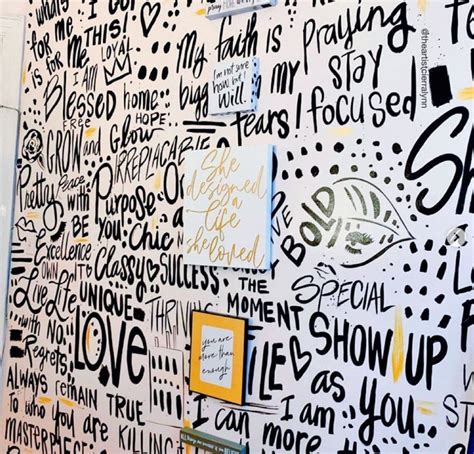 @theartistcierralynn
what's
for me
is for me
this is
I am
LOYAL
Blessed
FREE
home
HOPE
GROW AND Glow
IRREPLACABLE
Pretty
Peace
with
BE
Purpose
YOU
Chic
Excellence
OWN IT
Classy
SUCCESS
Live Life
with NO
Regrets
UNIQUE
LOVE
ALWAYS REMAIN TRUE
to who you are
KILLING
MASTERPIECE
THRIVING
My faith is
bigg
my
fears
I'm not sure
how but I
Will
She
designed
a
life
she loved
Praying
STAY
focused
BOLD
SPECIAL
THE
MOMENT
you are
more than
enough
SHOW UP
as You
I am
I can more